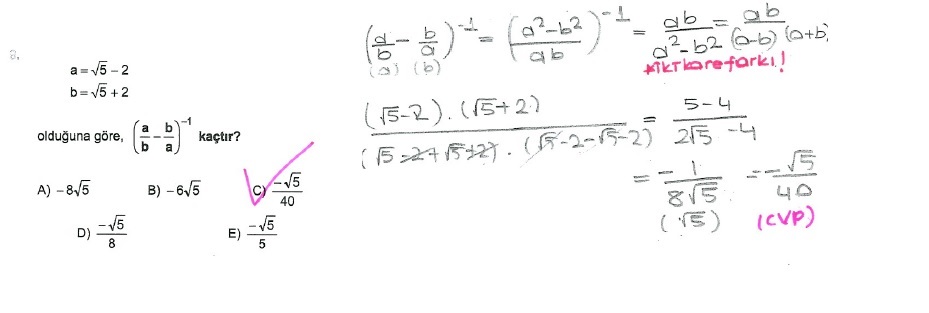 2.
a = √5 − 2
b = √5 + 2
olduğuna göre, (a/b − b/a)⁻¹ kaçtır?
A) −8√5 B) −6√5 C) −√5/40
D) −√5/8 E) −√5/5
(a/b − b/a)⁻¹ = ((a²−b²)/ab)⁻¹ = ab/(a²−b²) = ab/((a−b)(a+b))
(a) (b)
*iki kare farkı!
((√5−2).(√5+2))/((√5−2+√5+2).(√5−2−√5−2)) = (5−4)/(2√5 −4)
= −1/(8√5) = −√5/40
(√5) (CVP)